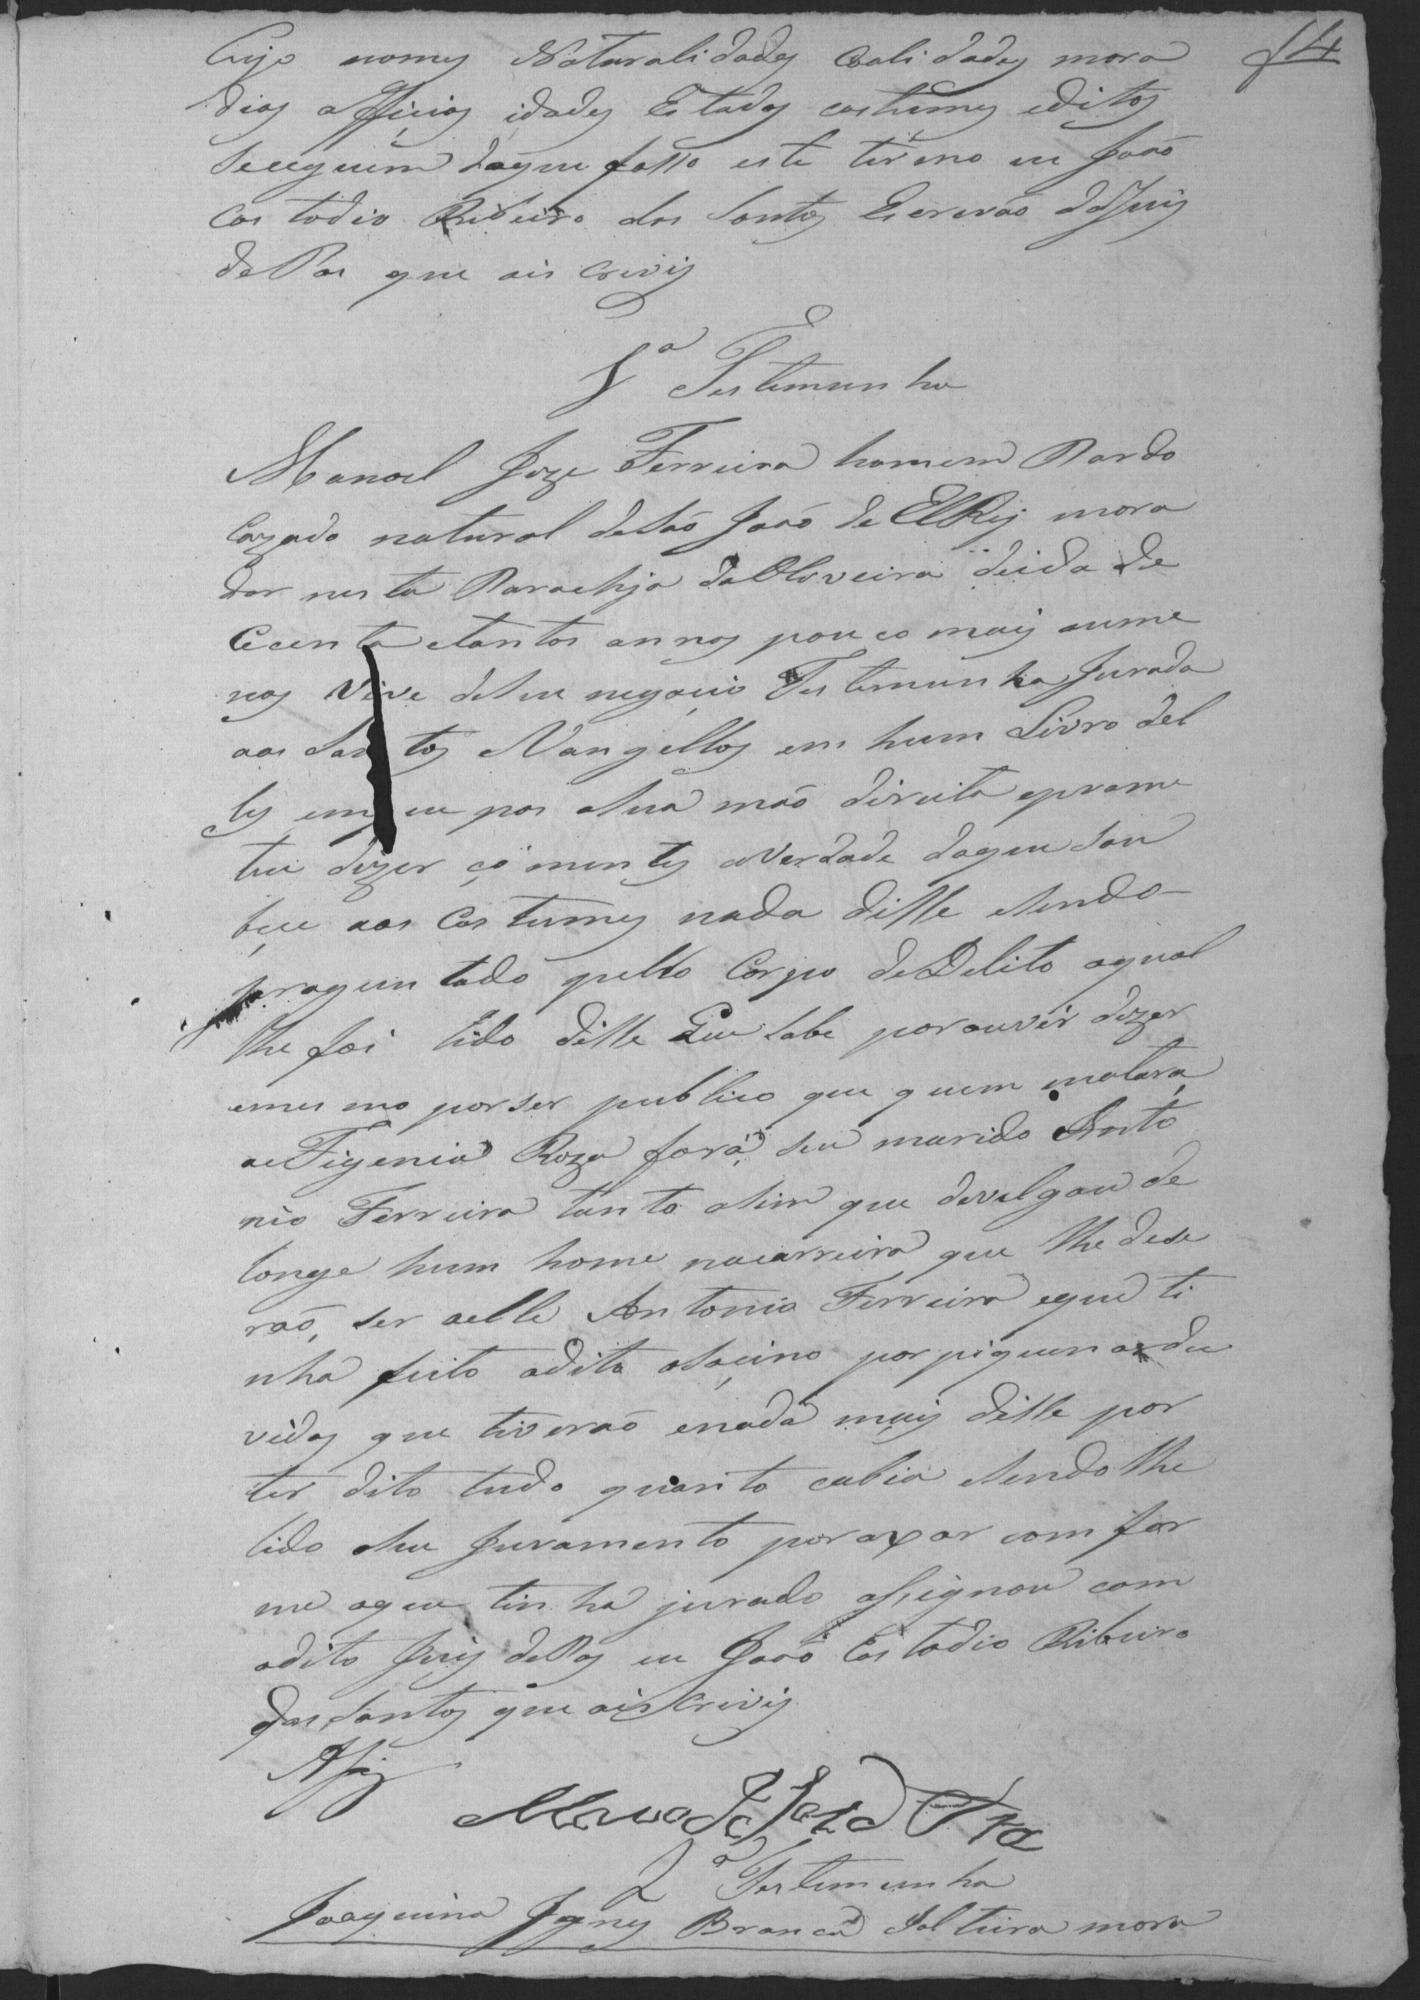 14
Cujo nomes Naturalidades Calidades mora
dias officios idades Estados costumes editos
seuguem doque fasso este termo eu João
Costodio Ribeiro dos Santos Escrivão doJuis
dePas que ais crevis
1ª Testemunha
Manoel Joze Ferreira homem Pardo
Cazado natural deSão João de ElRej mora
dor nesta Parochja daOliveira deida de
Cecenta etantos annos pouco mais aume
nos vive deseu negocio Testemunha Jurada
aos Santos Vangellos em hum Livro del
les emque pos aSua mão direita eprome
teu dizer comentes averdade doque Sou
beçe aos Costumes nada disse eSendo
preguntado pello Corpo deDelito aqual
lhe foi lido disse Que Sabe porouvir dizer
emesmo porser publico que quem matara
aeFigenia Roza fora Seu marido Anto
nio Ferreira tanto aSim que devulgou de
longe hum home nacarreira que lhe dese
rão, ser aelle Antonio Ferreira eque ti
nha feito adita aSaçino porpiquenas du
vidas que tiverão enada mais disse por
ter dito tudo quanto cabia eSendolhe
lido oSeu Juramento poraxar comfor
me aque tinha jurado assignou com
odito Juis dePas eu João Costodio Ribeiro
dos Santos que ais Crevis
2ª Testemunha
Joaquina Ignes Branca Solteira mora